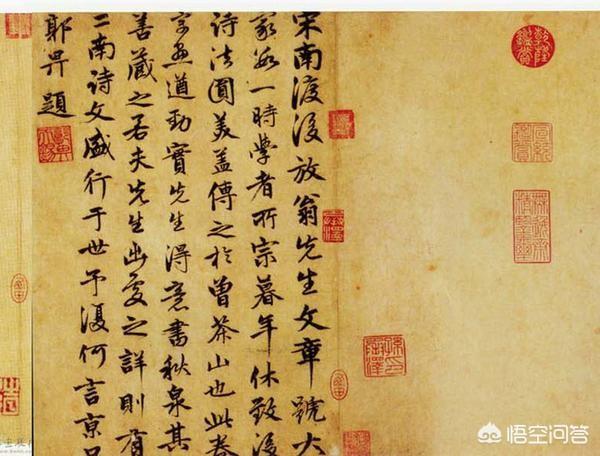 宋南渡後放翁先生文章號大
家為一時學者所宗暮年休致後
詩法圓美蓋傳之於曾茶山也此卷
字畫遒勁實先生得意書秋泉其
善藏之若夫先生出處之詳則有
二南詩文盛行于世予復何言京口
郭畀題
乾隆鑑賞
悟空问答